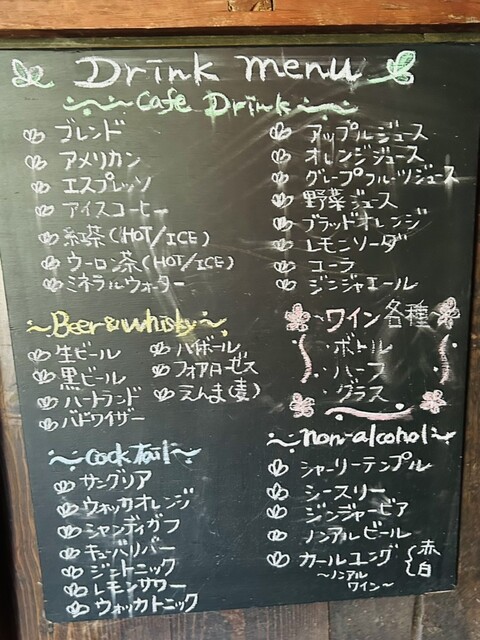 Drink menu
Cafe Drink
ブレンド
アメリカン
エスプレッソ
アイスコーヒー
紅茶(HOT/ICE)
ウーロン茶(HOT/ICE)
ミネラルウォーター
アップルジュース
オレンジジュース
グレープフルーツジュース
野菜ジュース
ブラッドオレンジ
レモンソーダ
コーラ
ジンジャエール
~Beer&Whisky~
生ビール
黒ビール
ハートランド
バドワイザー
ハイボール
フォアローゼス
えんま(麦)
~ワイン各種~
・ボトル
・ハーフ
・グラス
~Cocktail~
サングリア
ウォッカオレンジ
シャンディガフ
キューバリバー
ジントニック
レモンサワー
ウォッカトニック
~non-alcohol~
シャーリーテンプル
シースリー
ジンジャービア
ノンアルビール
カールユング{赤 白
~ノンアル
ワイン~